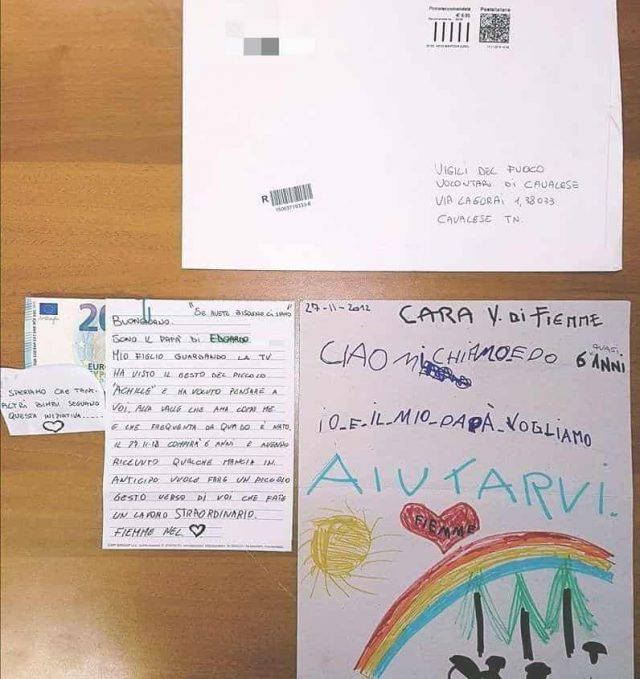 Posteraccomandata
Posteitaliane
€ 6,90
R
15063719333-6
VIGILI DEL FUOCO
VOLONTARI DI CAVALESE
VIA LAGORAI 1, 38033
CAVALESE TN.
20
EURO
SPERIAMO CHE TANTI
ALTRI BIMBI SEGUANO
QUESTA INIZIATIVA.......
"SE AVETE BISOGNO CI SIAMO"
BUONGIORNO.
SONO IL PAPÀ DI EDOARDO
MIO FIGLIO GUARDANDO LA TV
HA VISTO IL GESTO DEL PICCOLO
"ACHILLE" E HA VOLUTO PENSARE A
VOI, ALLA VALLE CHE AMA COME ME
E CHE FREQUENTA DA QUANDO È NATO.
IL 29-11-18 COMPIRÀ 6 ANNI E AVENDO
RICEVUTO QUALCHE MANCIA IN..
ANTICIPO VUOLE FARE UN PICCOLO
GESTO VERSO DI VOI CHE FATE
UN LAVORO STRAORDINARIO.
FIEMME NEL
29-11-2012
CARA V. DI FIEMME
CIAO MI CHIAMO EDO
QUASI
6 ANNI
IO E IL MIO PAPÀ VOGLIAMO
AIUTARVI.
FIEMME